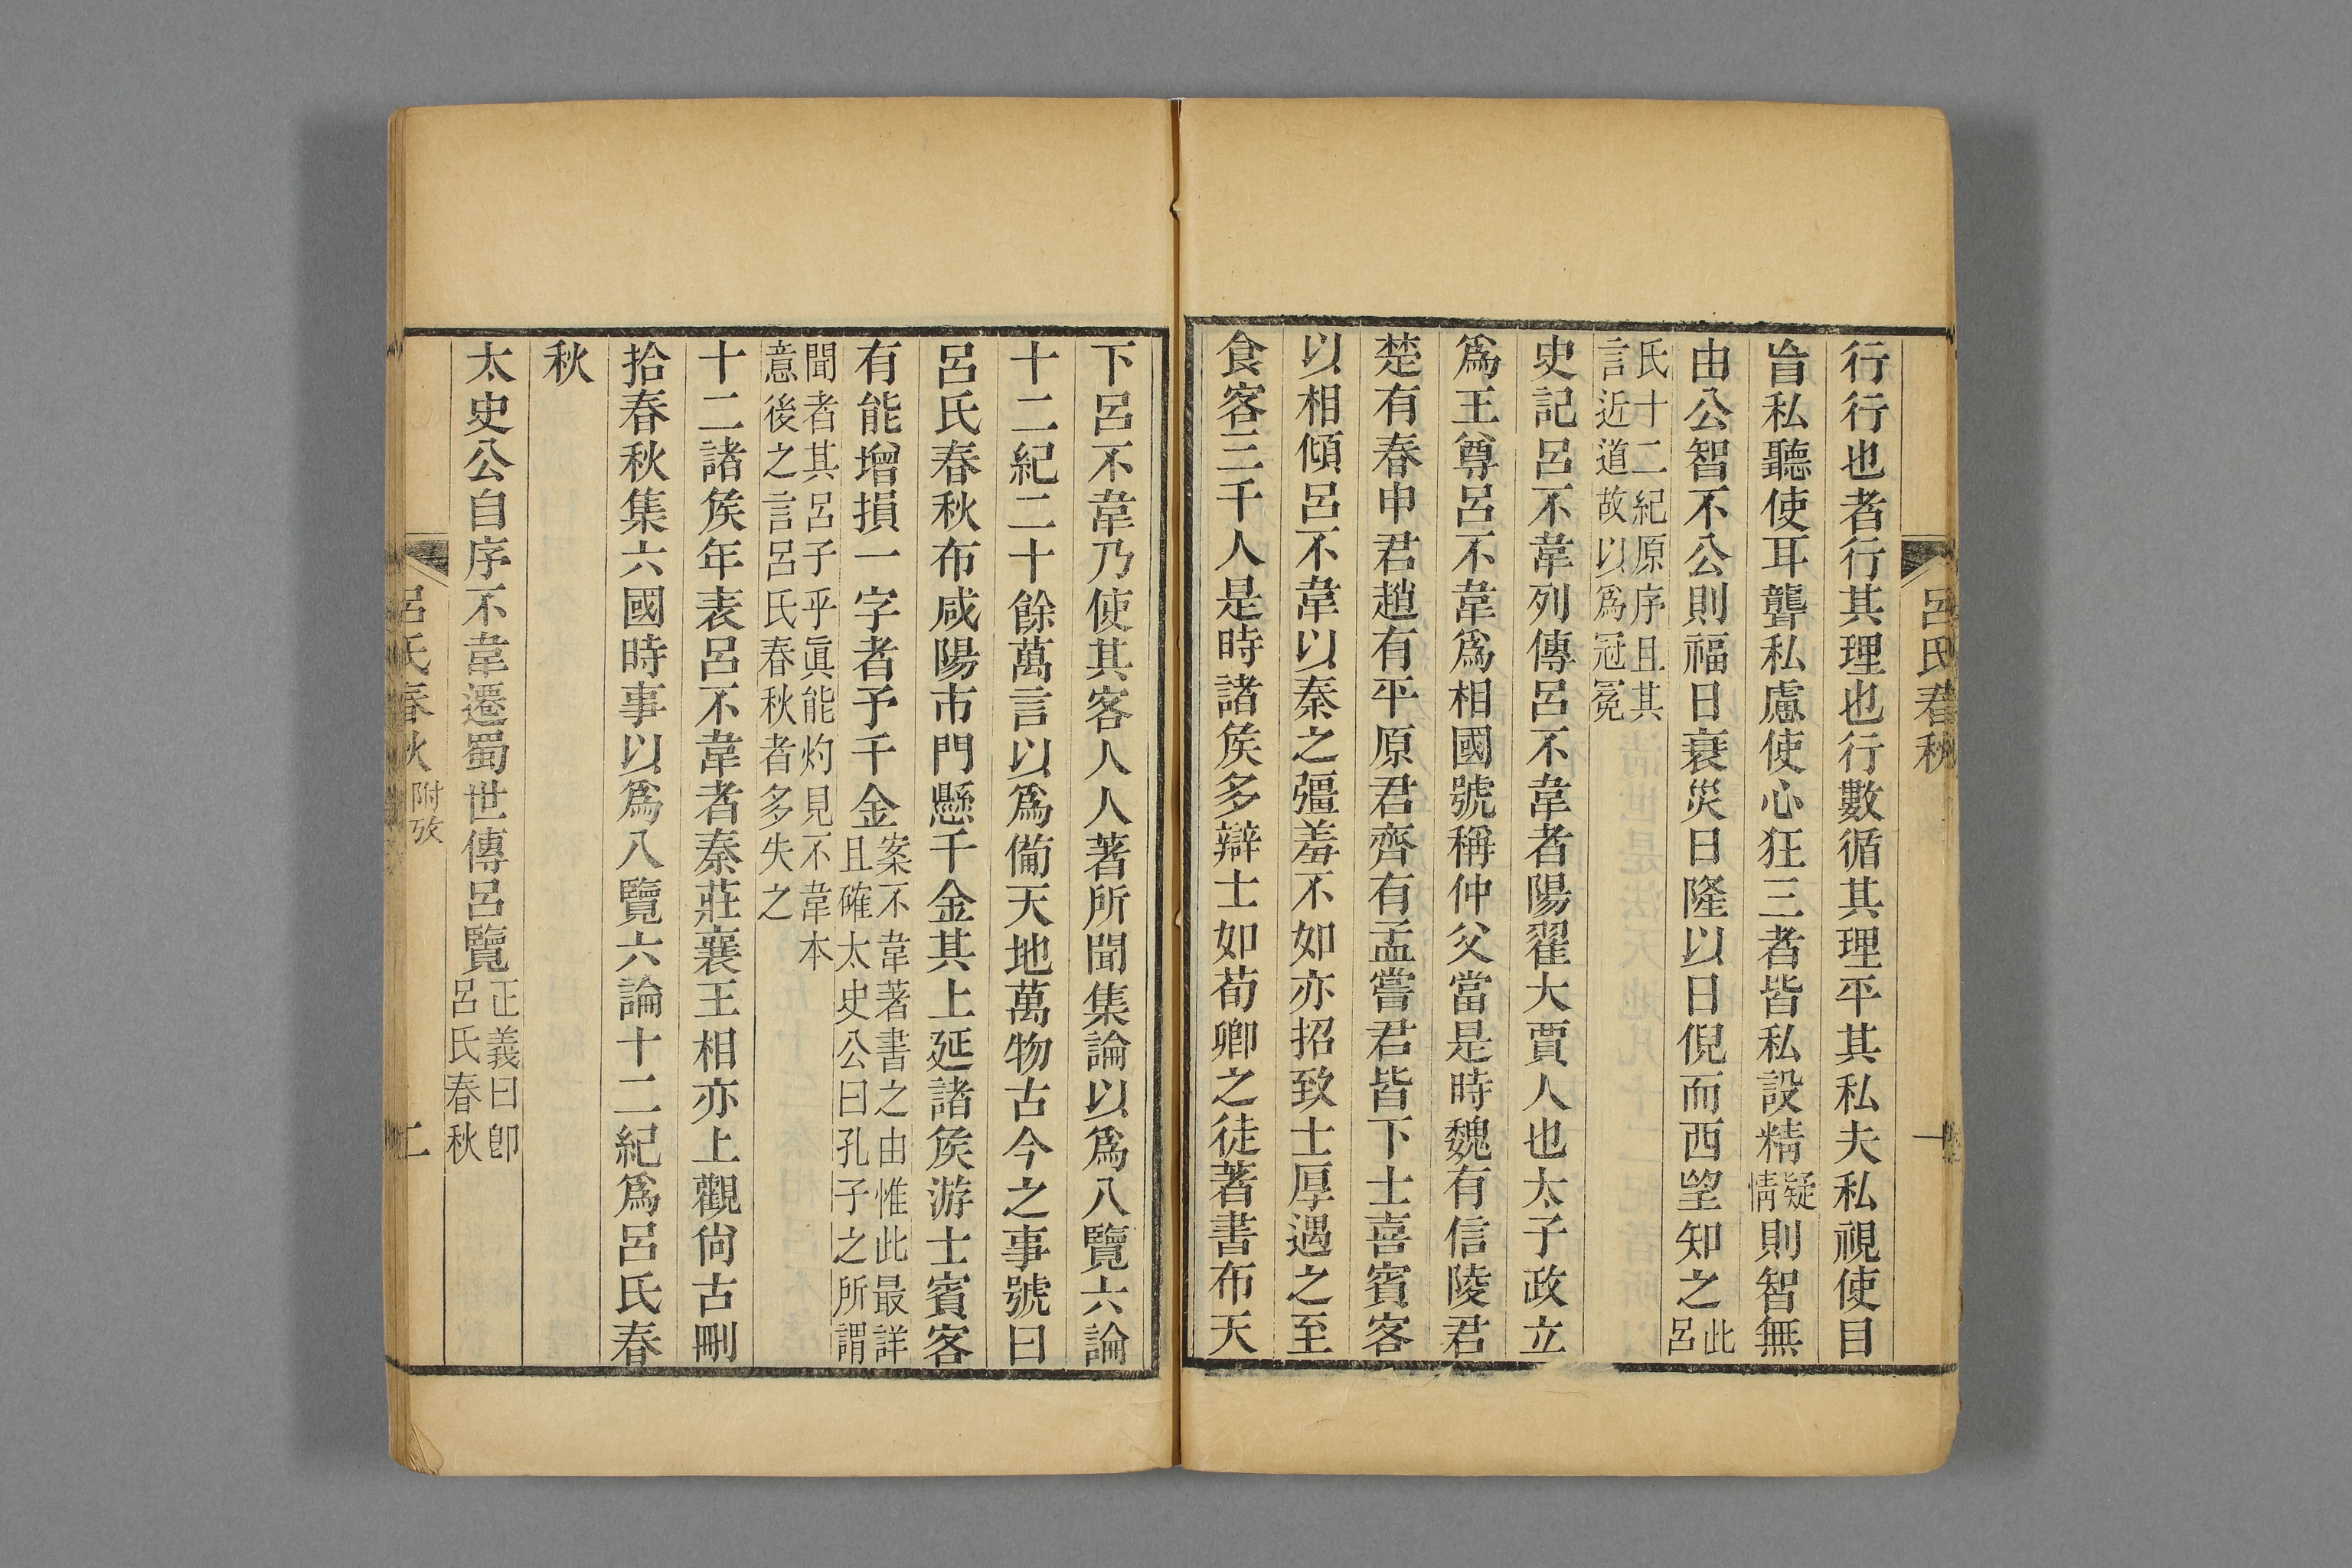 呂氏春秋
一
行行也者行其理也行數循其理平其私夫私視使目
盲私聽使耳聾私慮使心狂三者皆私設精疑情則智無
由公智不公則福日衰災日隆以日倪而西望知之此呂
氏十二紀原序且其
言近道故以爲冠冕
史記呂不韋列傳呂不韋者陽翟大賈人也太子政立
爲王尊呂不韋爲相國號稱仲父當是時魏有信陵君
楚有春申君趙有平原君齊有孟嘗君皆下士喜賓客
以相傾呂不韋以秦之彊羞不如亦招致士厚遇之至
食客三千人是時諸矦多辯士如荀卿之徒著書布天
下呂不韋乃使其客人人著所聞集論以爲八覽六論
十二紀二十餘萬言以爲備天地萬物古今之事號曰
呂氏春秋布咸陽市門懸千金其上延諸矦游士賓客
有能增損一字者予千金案不韋著書之由惟此最詳
且確太史公曰孔子之所謂
聞者其呂子乎眞能灼見不韋本
意後之言呂氏春秋者多失之
十二諸矦年表呂不韋者秦莊襄王相亦上觀尙古刪
拾春秋集六國時事以爲八覽六論十二紀爲呂氏春
秋
太史公自序不韋遷蜀世傳呂覽正義曰卽
呂氏春秋
呂氏春秋附攷
二